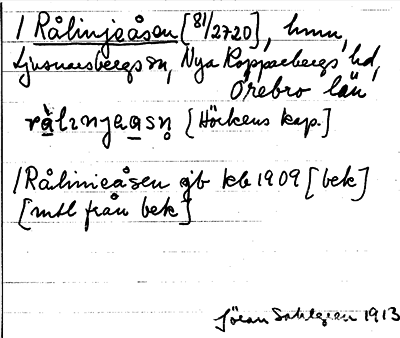 / Rålinjeåsen [81/2720], hmn,
Ljusnarsbergs sn, Nya Kopparbergs hd,
Örebro län
rå̀lɪnjeasn̥ [Hörkens kap.]
/ Rålinieåsen gb kb 1909 [bek]
[mtl från bek]
Jöran Sahlgren 1913